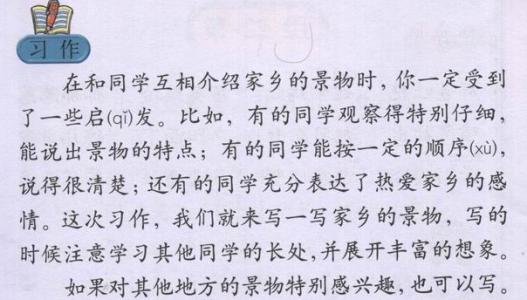 习作
在和同学互相介绍家乡的景物时，你一定受到
了一些启(qǐ)发。比如，有的同学观察得特别仔细，
能说出景物的特点；有的同学能按一定的顺序(xù)，
说得很清楚；还有的同学充分表达了热爱家乡的感
情。这次习作，我们就来写一写家乡的景物，写的
时候注意学习其他同学的长处，并展开丰富的想象。
如果对其他地方的景物特别感兴趣，也可以写。